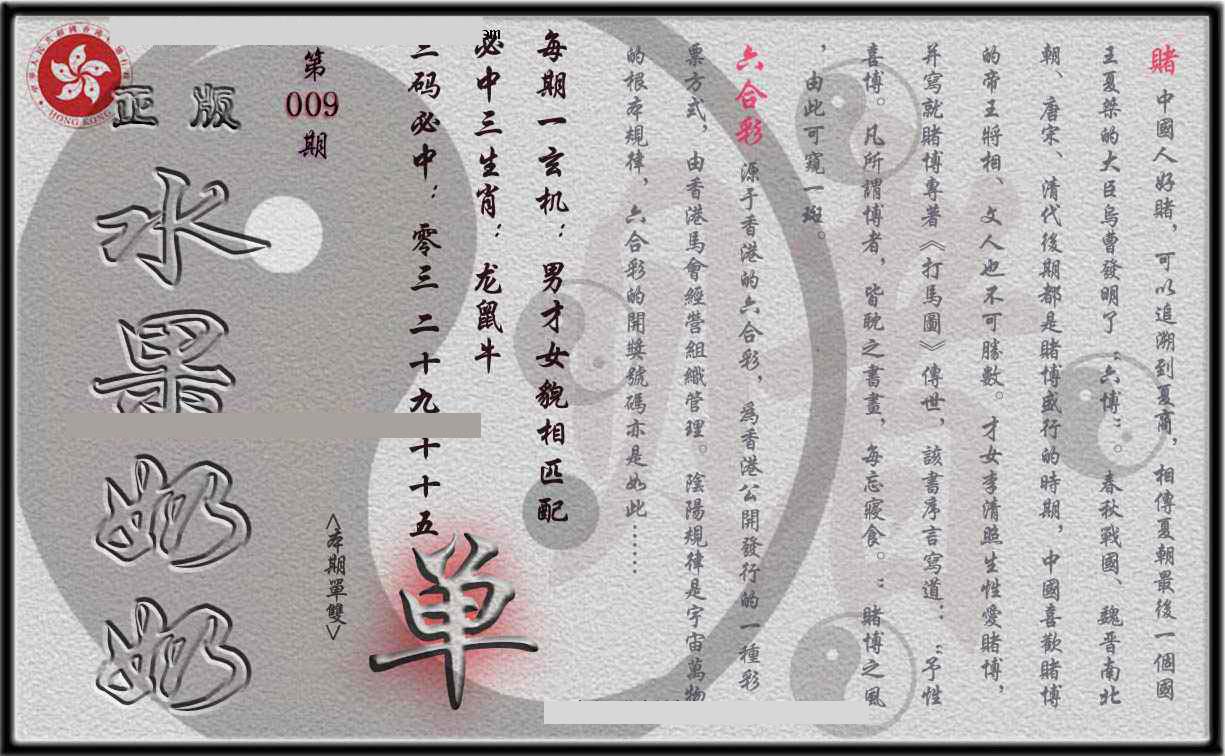 賭 中國人好賭，可以追溯到夏商，相傳夏朝最後一個國
王夏桀的大臣烏曹發明了“六博”。春秋戰國、魏晋南北
朝、唐宋、清代後期都是賭博盛行的時期，中國喜歡賭博
的帝王將相、文人也不可勝數。才女李清照生性愛賭博，
并寫就賭博專著《打馬圖》傳世，該書序言寫道：“予性
喜博。凡所謂博者，皆耽之晝畫，每忘寢食。”賭博之風
，由此可窺一斑。
六合彩 源于香港的六合彩，為香港公開發行的一種彩
票方式，由香港馬會經營組織管理。陰陽規律是宇宙萬物
的根本規律，六合彩的開獎號碼亦是如此……
每期一玄机：男才女貌相匹配
必中三生肖：龙鼠牛
三码必中：零三 二十九 十五
单
<本期單雙>
第
009
期
正版
水果奶奶
HONG KONG